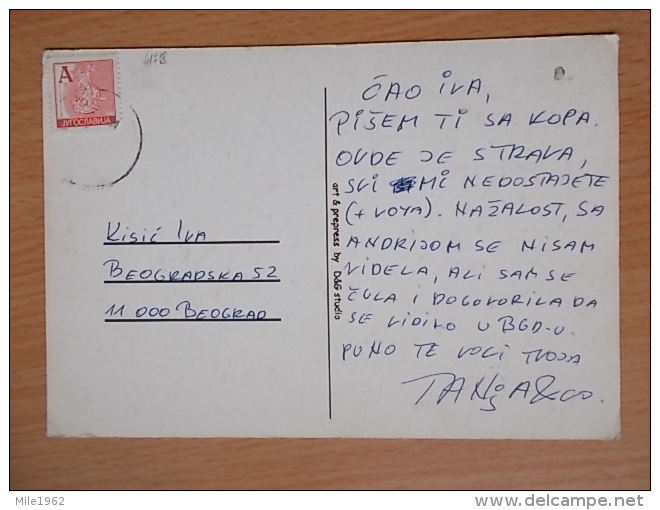 A
ЈУГОСЛАВИЈА
41718
ČAO IVA,
PIŠEM TI SA KOPA.
OVDE JE STRAVA,
SVI MI NEDOSTAJETE
(+ VOYA). NAŽALOST, SA
ANDRIJOM SE NISAM
VIDELA, ALI SAM SE
ČULA I DOGOVORILA DA
SE VIDIMO U BGD-U.
PUNO TE VOLI TVOJA
TANJA&CO.
art & prepress by D&G studio
KISIĆ IVA
BEOGRADSKA 52
11 000 BEOGRAD
Mile1962
delcampe.net